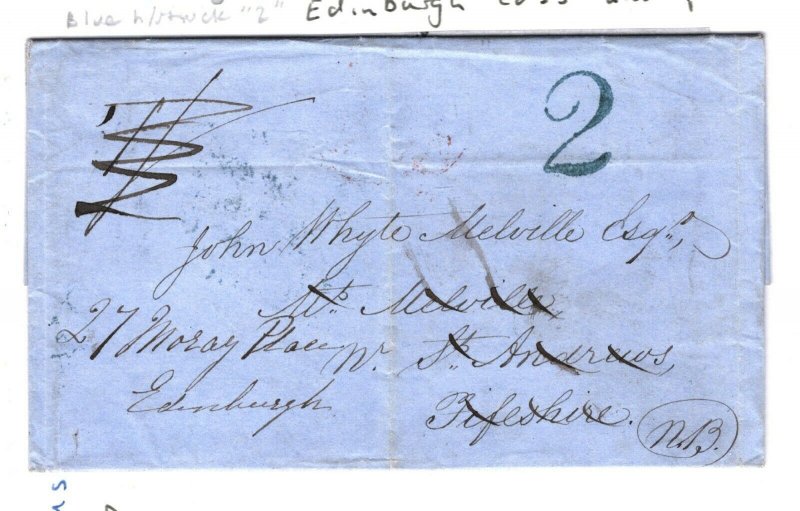 Blue h/struck "2" Edinburgh
2
John Whyte Melville Esqr.,
Mt. Melville,
27 Moray Place Nr. St. Andrews,
Edinburgh
Fifeshire.
N.B.